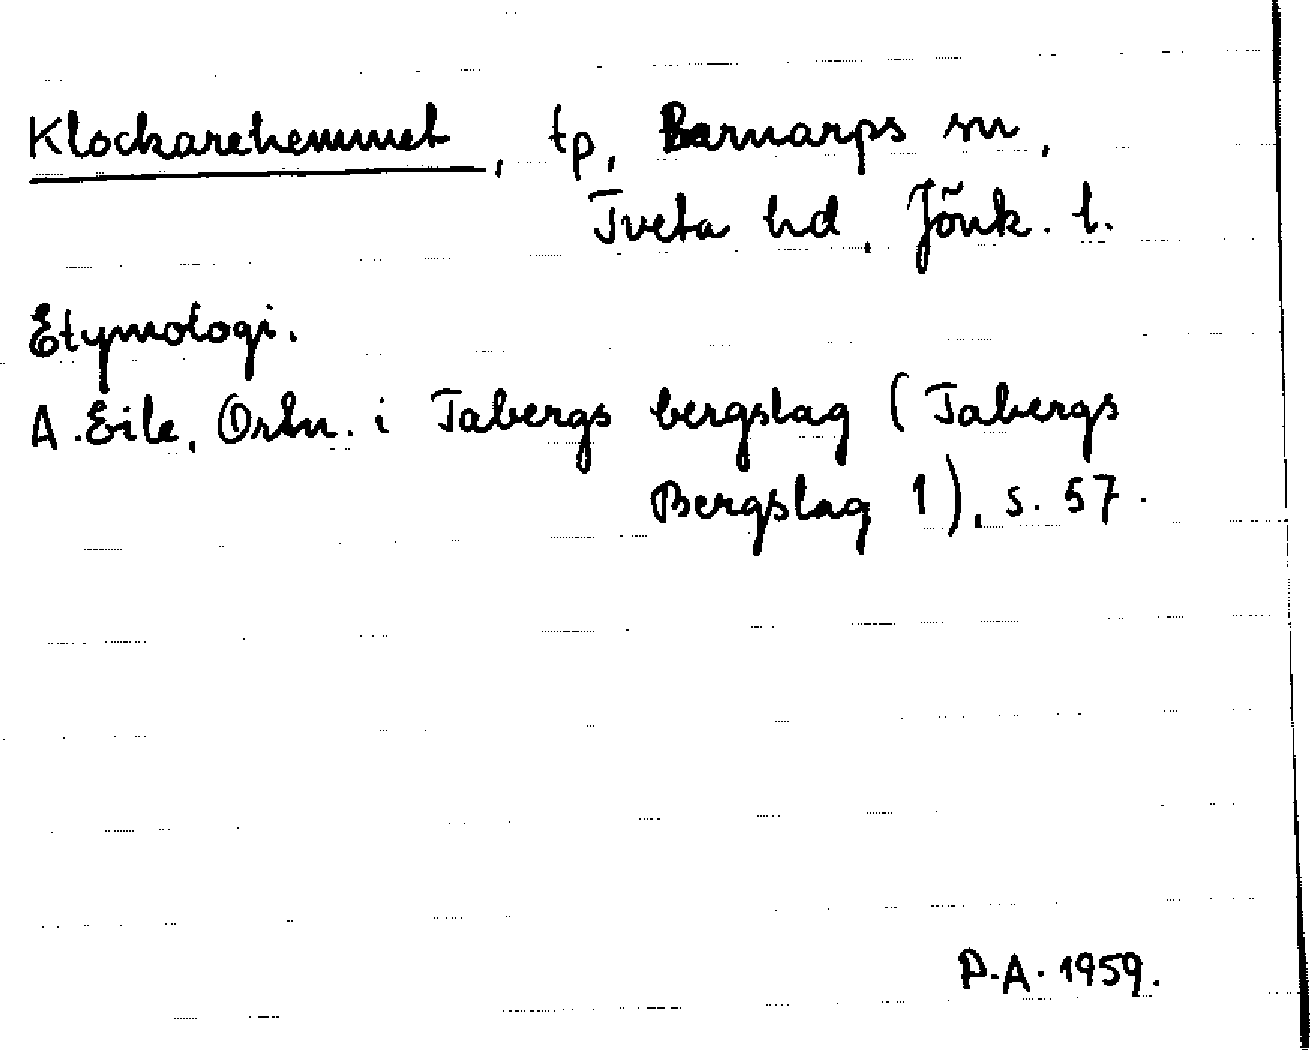 Klockarehemmet, tp, Barnarps sn,
Tveta hd, Jönk. l.
Etymologi.
A. Eile, Ortn. i Tabergs bergslag (Tabergs
Bergslag 1), s. 57.
P.A. 1959.